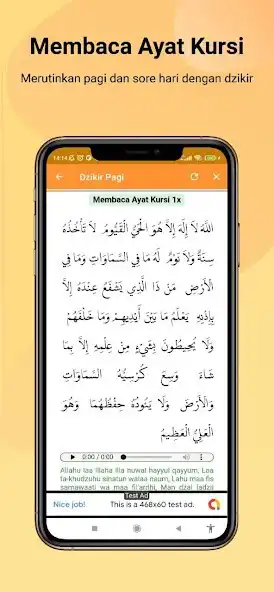 Membaca Ayat Kursi
Merutinkan pagi dan sore hari dengan dzikir
14:14
Dzikir Pagi
Membaca Ayat Kursi 1x
اللهُ لاَ إِلَهَ إِلاَّ هُوَ الْحَيُّ الْقَيُّومُ لاَ تَأْخُذُهُ
سِنَةٌ وَلاَ نَوْمٌ لَهُ مَا فِي السَّمَاوَاتِ وَمَا فِي
الْأَرْضِ مَنْ ذَا الَّذِي يَشْفَعُ عِنْدَهُ إِلاَّ
بِإِذْنِهِ يَعْلَمُ مَا بَيْنَ أَيْدِيهِمْ وَمَا خَلْفَهُمْ
وَلاَ يُحِيطُونَ بِشَيْءٍ مِنْ عِلْمِهِ إِلاَّ بِمَا
شَاءَ وَسِعَ كُرْسِيُّهُ السَّمَاوَاتِ
وَالْأَرْضَ وَلاَ يَئُودُهُ حِفْظُهُمَا وَهُوَ
الْعَلِيُّ الْعَظِيمُ
0:00 / 0:00
Allahu laa ilaha illa huwal hayyul qayyum, Laa
ta-khudzuhu sinatuw walaa naum, Lahu maa fis
samawaati wa maa fil'ardhi, Man dzal ladzii
Test Ad
Nice job!
This is a 468x60 test ad.